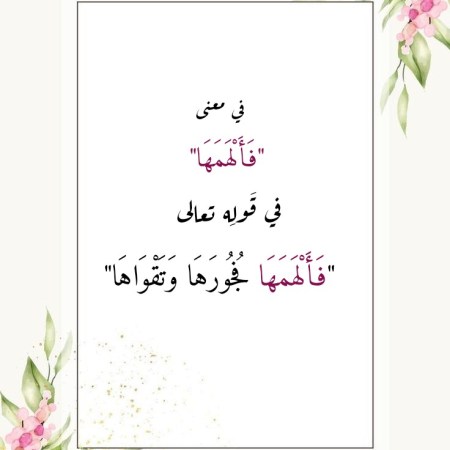 في معنى
"فَأَلْهَمَهَا"
في قَولِه تعالى
"فَأَلْهَمَهَا فُجُورَهَا وَتَقْوَاهَا"